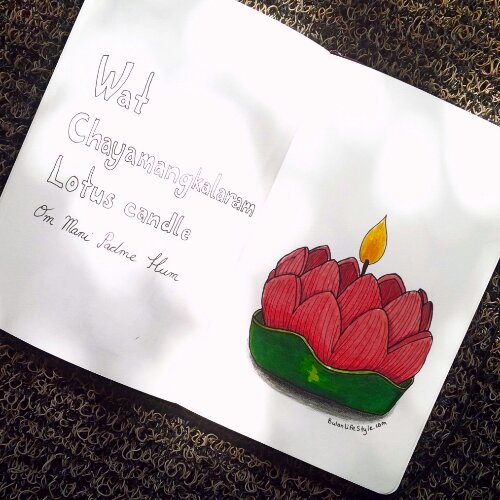 Wat
Chayamangkalaram
Lotus candle
Om Mani Padme Hum
BulanLifeStyle.com